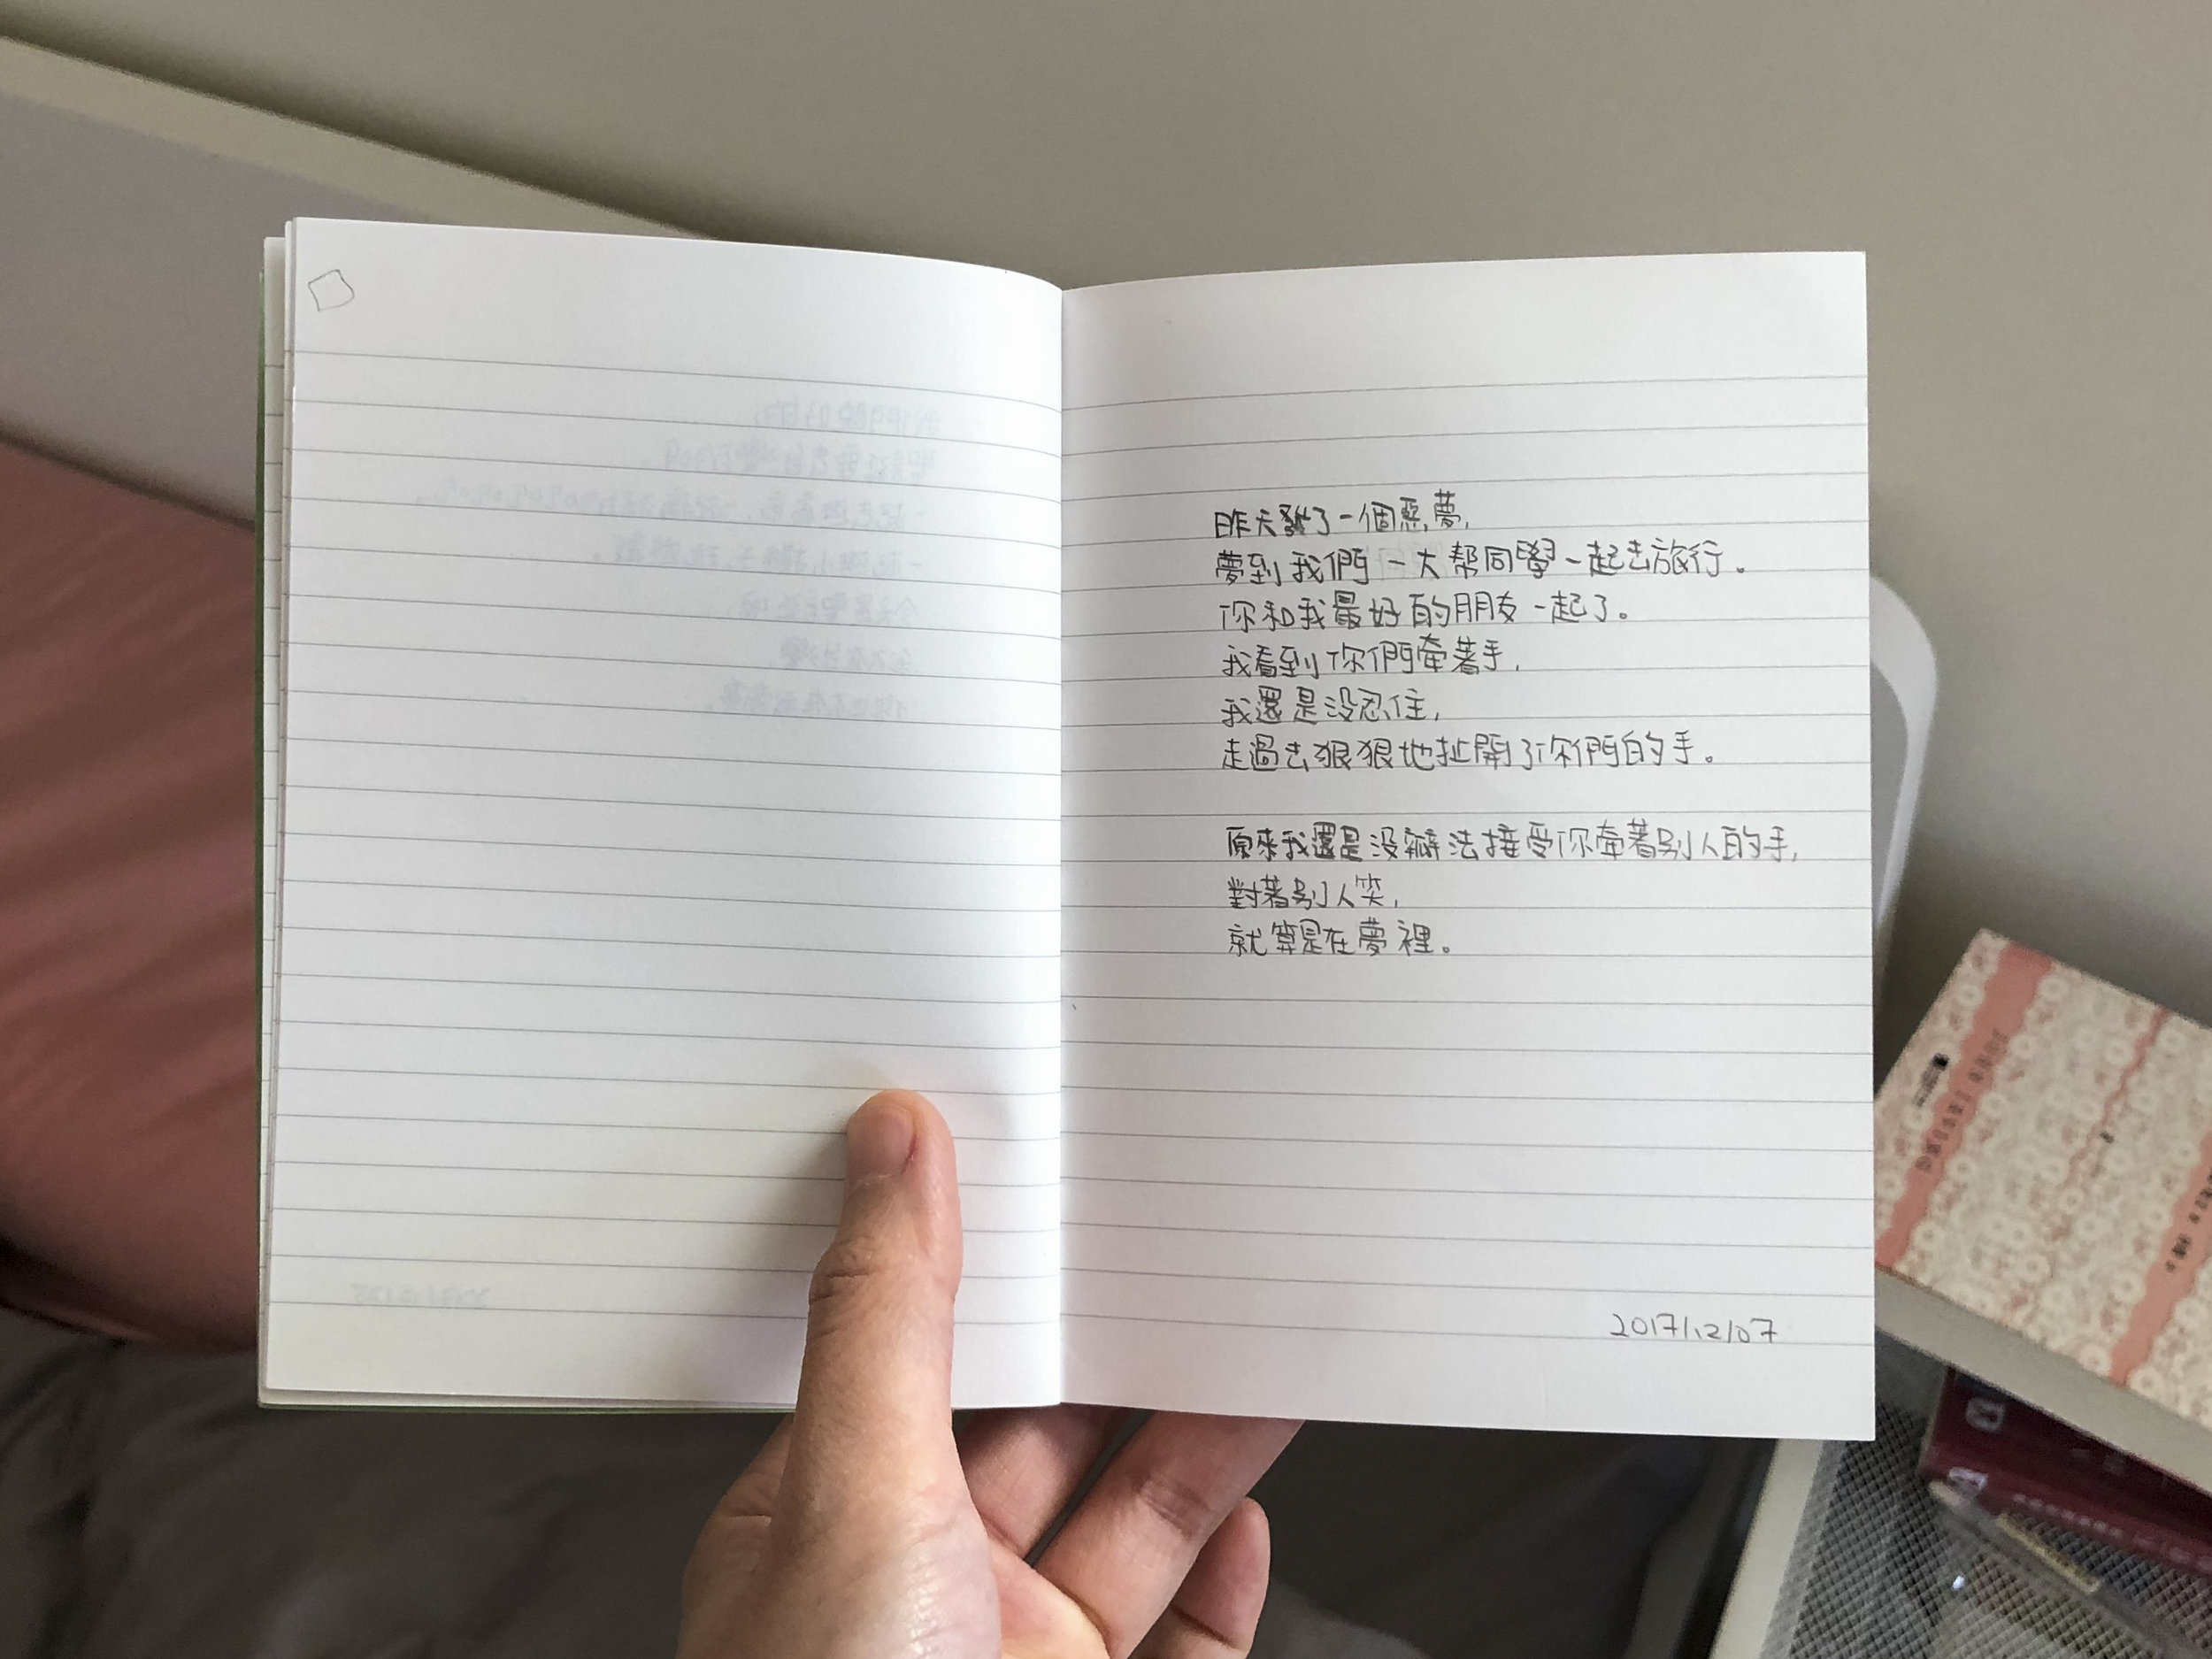 昨天發了一個惡夢,
夢到我們一大帮同學一起去旅行。
你和我最好的朋友一起了。
我看到你們牽著手,
我還是没忍住,
走過去狠狠地扯開了你們的手。
原來我還是没辦法接受你牽著别人的手,
對著别人笑,
就算是在夢裡。
2017/12/07